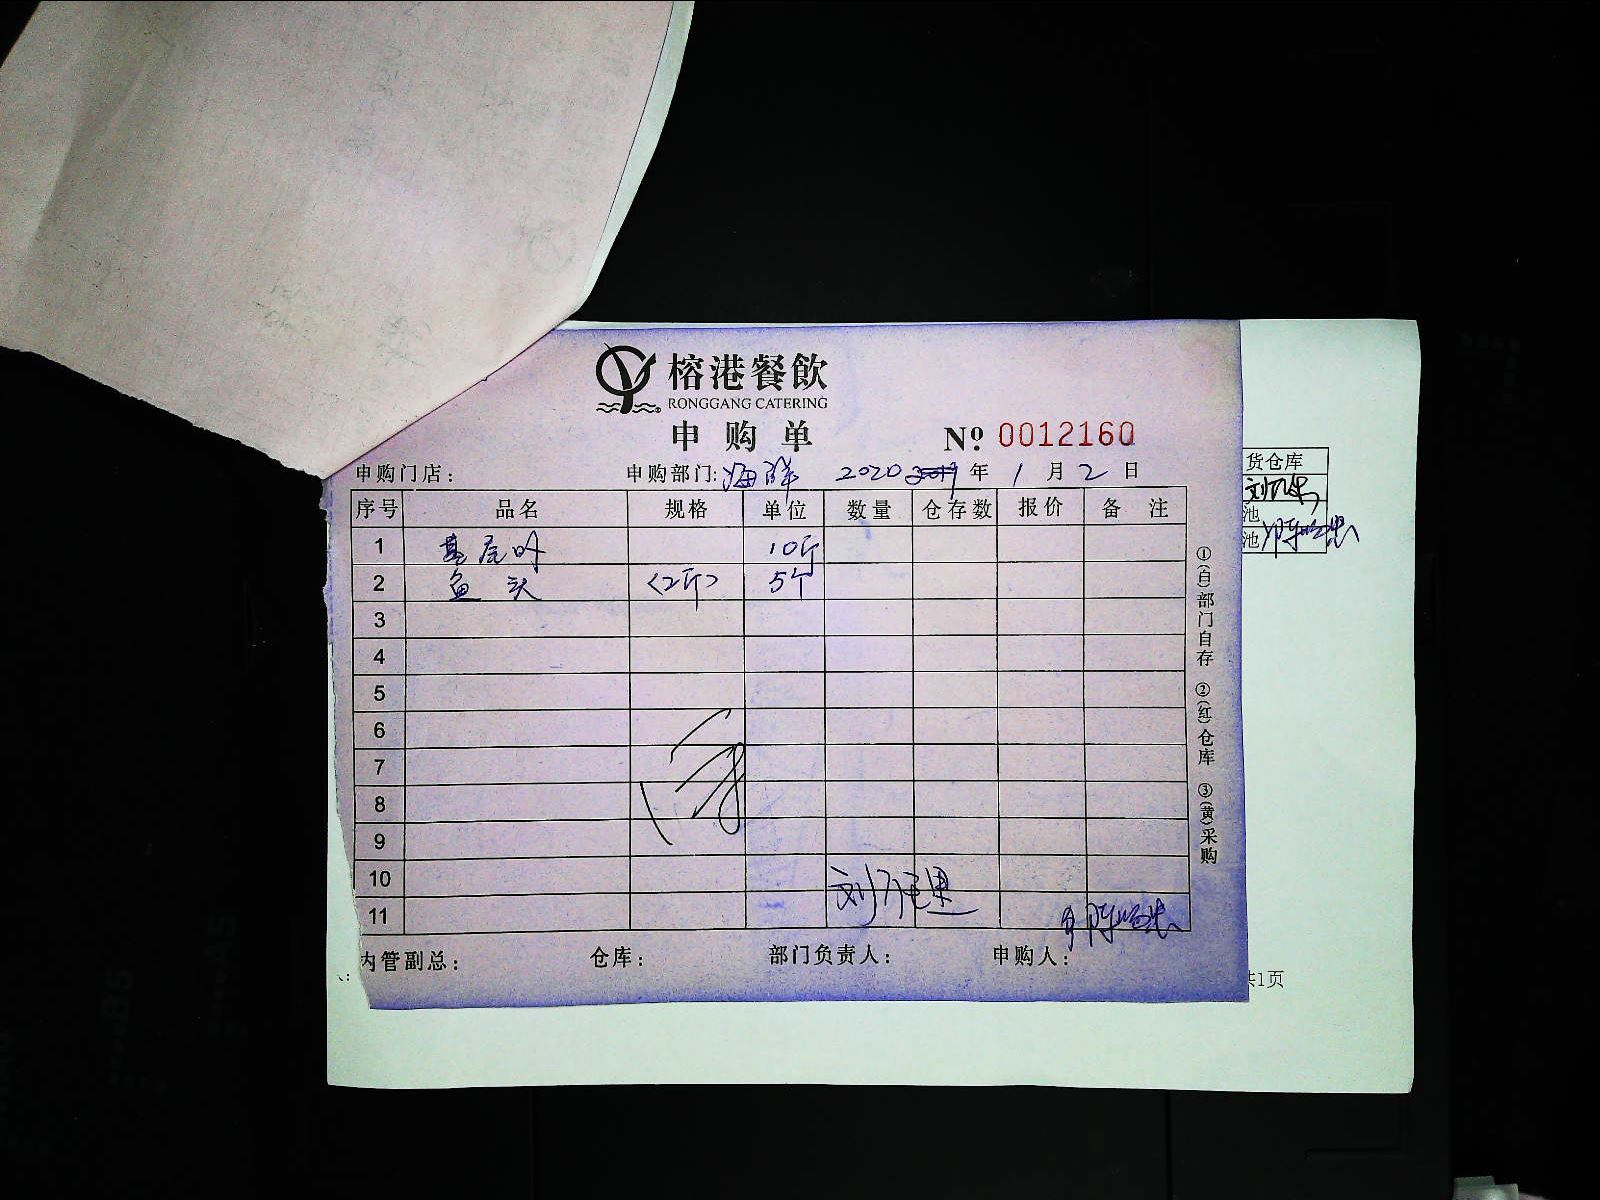 榕港餐飲
RONGGANG CATERING
申购单
№ 0012160
申购门店： 申购部门:海鲜 2020年1月2日
货仓库
序号 品名 规格 单位 数量 仓存数 报价 备注
1 基尾叶 10斤
2 鱼头 〈2斤〉 5个
池
池
3
4
5
6
7
8
9
10
11
①(白)部门自存 ②(红)仓库 ③(黄)采购
内管副总： 仓库： 部门负责人： 申购人：
共1页